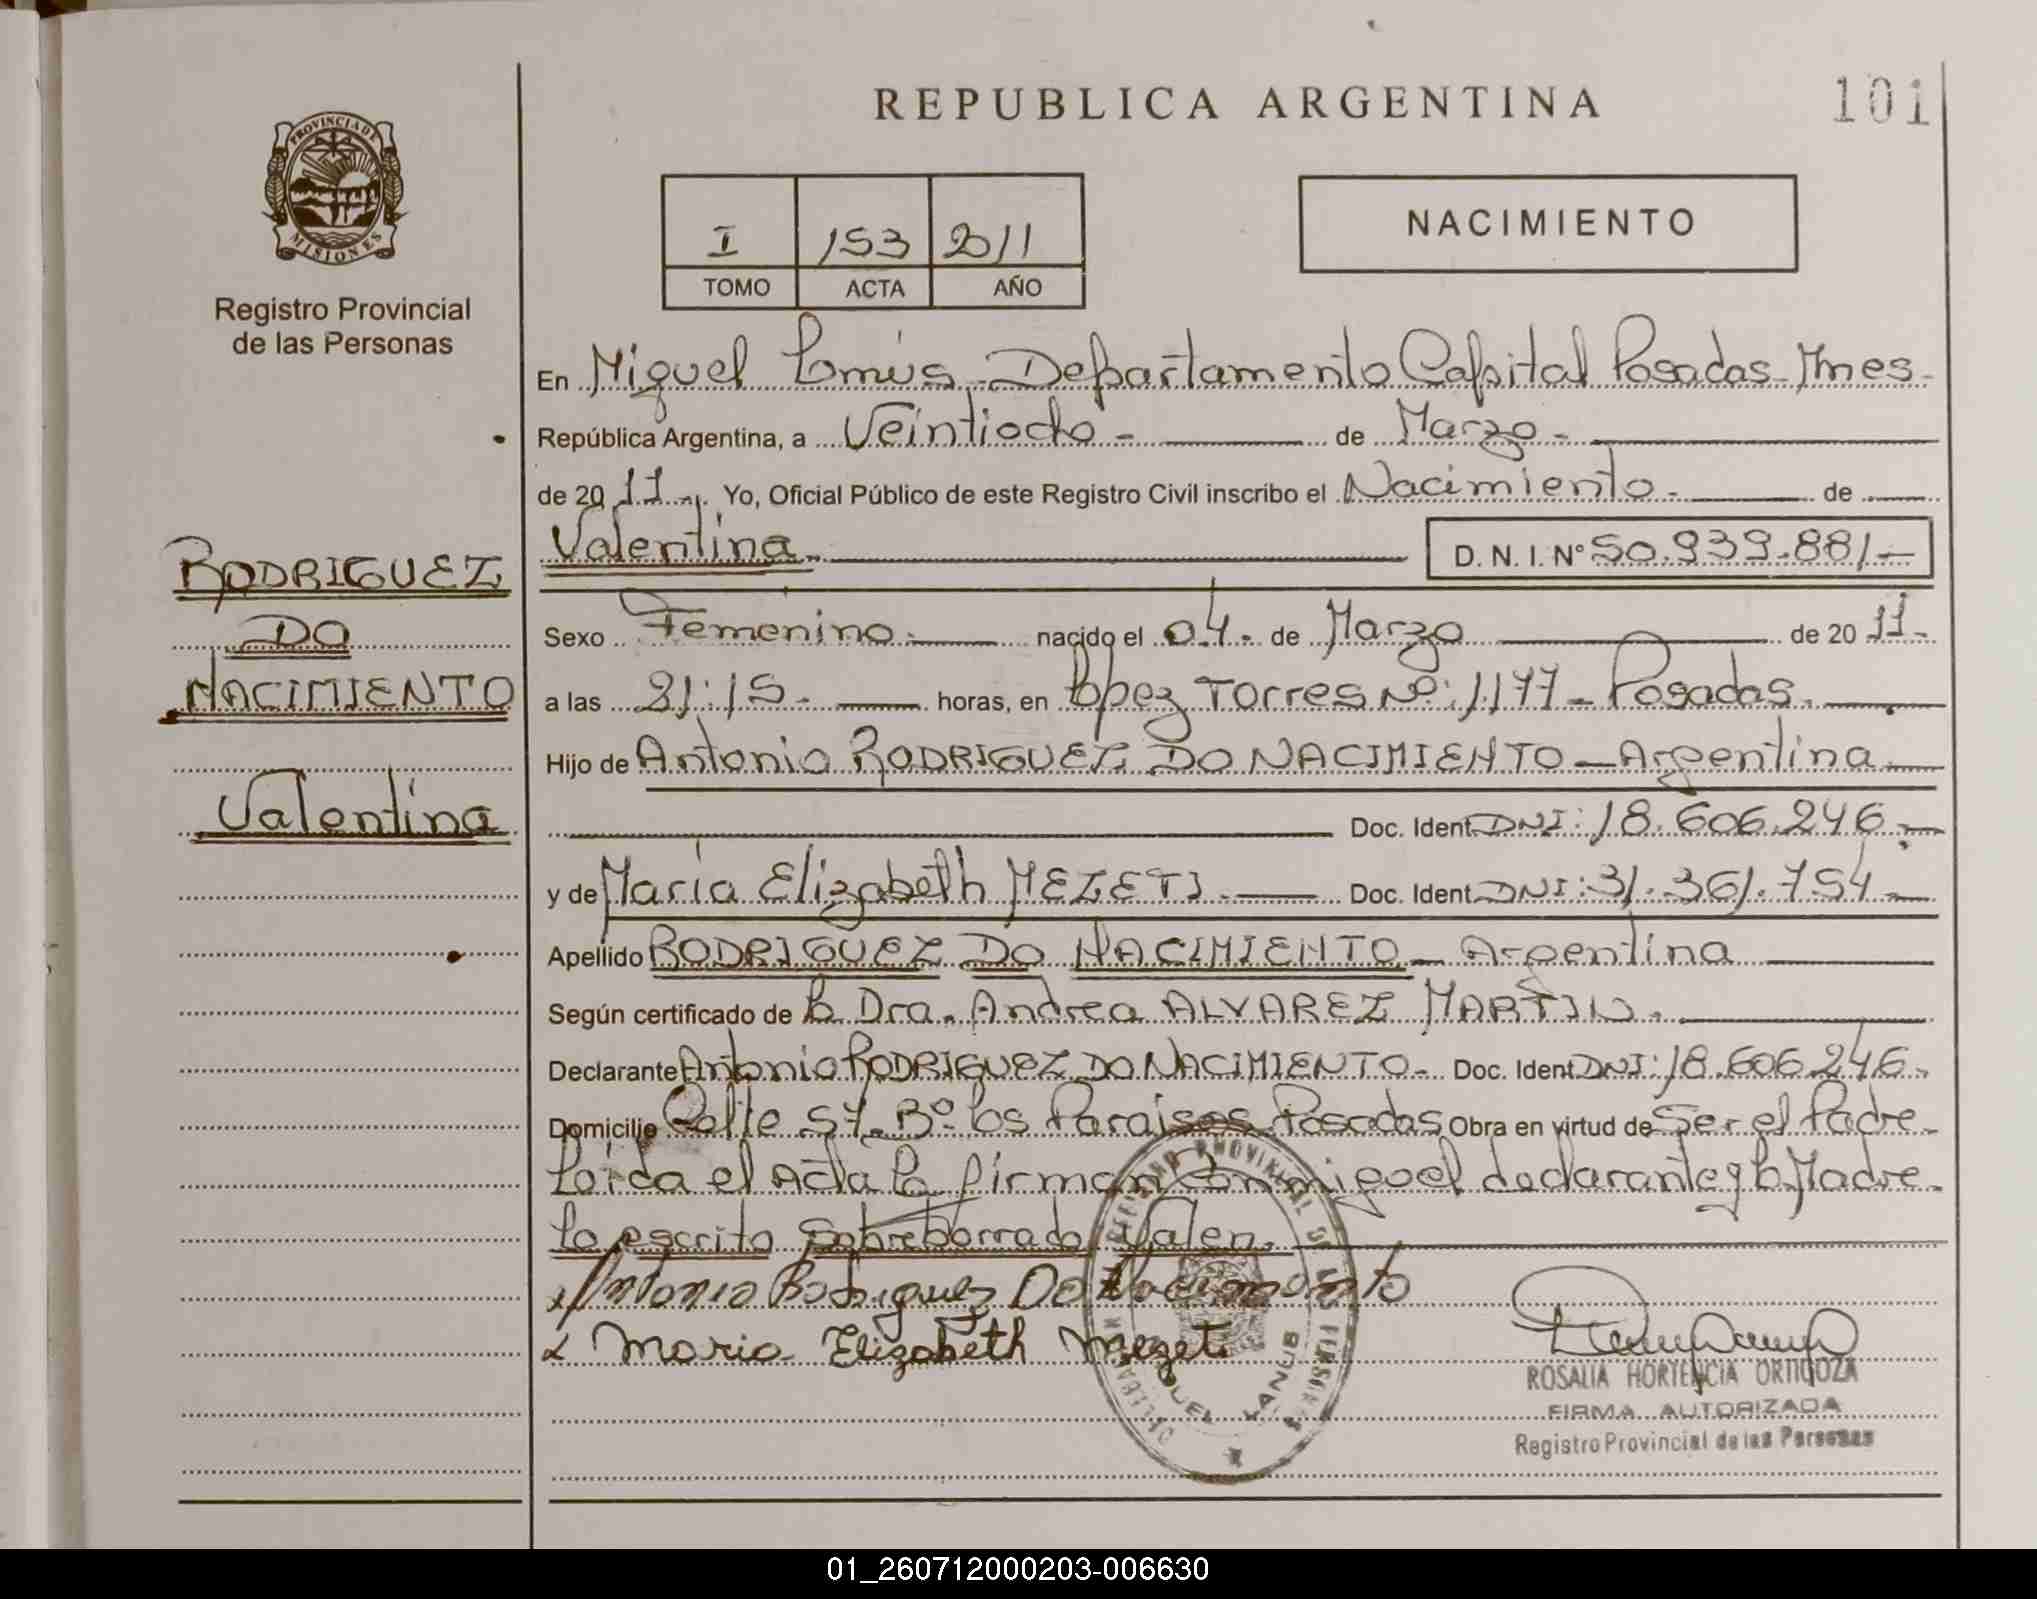 REPUBLICA ARGENTINA
101
PROVINCIA DE
MISIONES
Registro Provincial
de las Personas
I 153 2011
TOMO ACTA AÑO
NACIMIENTO
En Miguel Lanús - Departamento Capital Posadas - Mnes -
República Argentina, a Veintiocho - de Marzo -
de 2011 -. Yo, Oficial Público de este Registro Civil inscribo el Nacimiento - de
Valentina - D. N. I. N° 50.939.881 -
RODRIGUEZ
DO
NACIMIENTO
Valentina
Sexo Femenino - nacido el 04 - de Marzo de 2011 -
a las 21:15 - horas, en López Torres Nº: 1177 - Posadas.
Hijo de Antonio RODRIGUEZ DO NACIMIENTO - Argentina
Doc. Ident. DNI: 18.606.246 -
y de María Elizabeth MEZETI - Doc. Ident. DNI: 31.361.754 -
Apellido RODRIGUEZ DO NACIMIENTO - Argentina
Según certificado de la Dra. Andrea ALVAREZ MARTIN.
Declarante Antonio RODRIGUEZ DO NACIMIENTO - Doc. Ident. DNI: 18.606.246 -
Domicilio Calle 57 - Bº Los Paraisos Posadas Obra en virtud de Ser el Padre -
Leida el Acta la firman conmigo el declarante y la Madre -
Lo escrito sobreborrado Valen.
Antonio Rodriguez Do Nacimiento
Maria Elizabeth Mezeti
ROSALIA HORTENCIA ORTIGOZA
FIRMA AUTORIZADA
Registro Provincial de las Personas
01_260712000203-006630